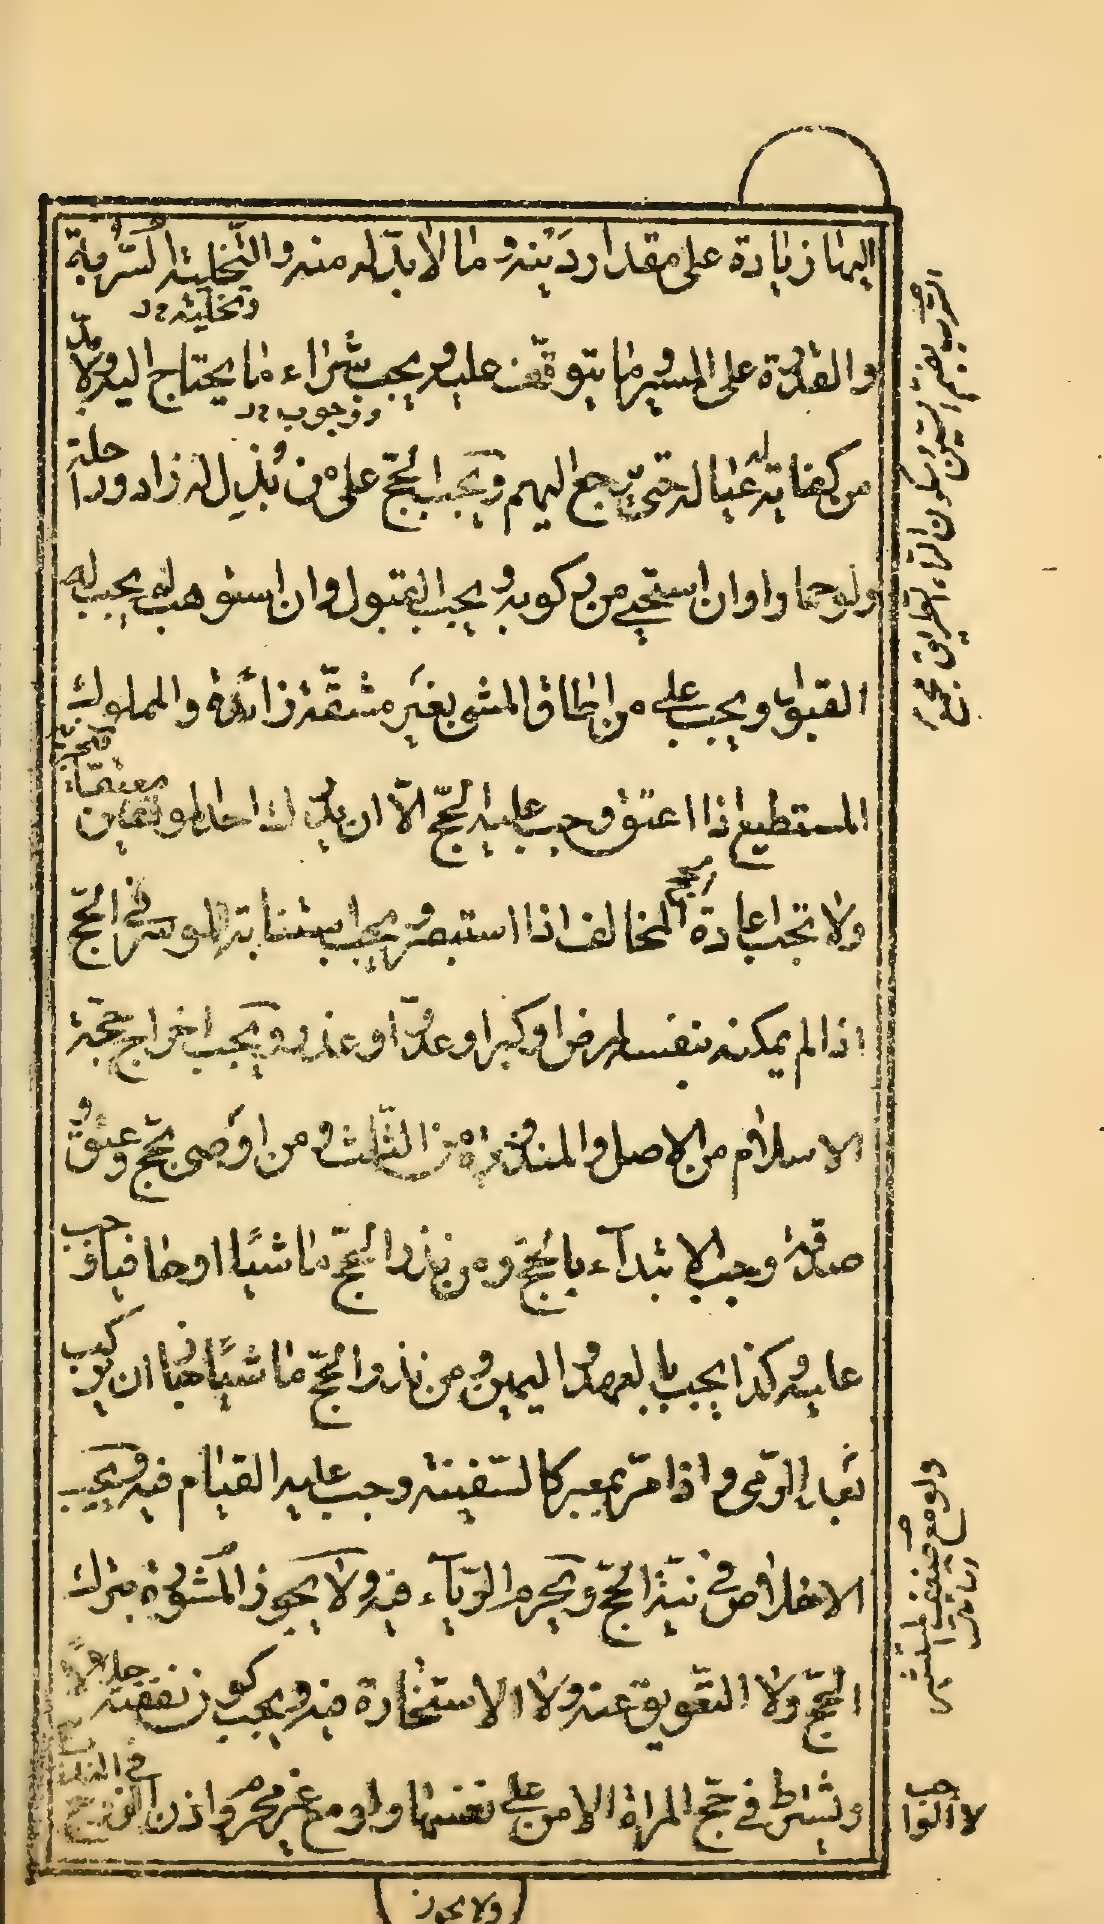 اليها زيادة على مقدار دينه وما لا بدّ له منه والتّخلية السّربية
وتخليته
والقدرة على المسير وما يتوقّف عليه ويجب شراء ما يحتاج اليه ولا بدّ
ووجوب
من كفاية عياله حتى يرجع اليهم ويجب الحجّ على من بذل له زاد وراحلة
ولو حمارا وان استحيى من ركوبه ويجب القبول وان استوهب لم يجب له
القبول ويجب على من اطاق المشي بغير مشقّة زائدة والمملوك
المستطيع اذا اعتق وجب عليه الحجّ الّا ان يدرك احد الموقفين معتقا
ولا تجب اعادة المخالف اذا استبصر ويجب استنابة الموسر في الحجّ
حجّه
اذا لم يمكنه بنفسه لمرض او كبر او عدوّ او عذر ويجب اخراج حجّة
الاسلام من الاصل والمنذورة من الثّلث ومن اوصى بحجّ وعتق و
صدقة وجب الابتداء بالحجّ ومن نذر الحجّ ماشيًا او حافيا وجب
عليه وكذا يجب بالعهد واليمين ومن نذر الحجّ ماشيًا ان يركب
بعد الرّمي واذا مرّ بمعبر كالسّفينة وجب عليه القيام فيه ويجب
الاخلاص في نيّة الحجّ ويحرم الرّياء فيه ولا يجوز المشورة بترك
الحجّ ولا التّعويق عنه ولا الاستخارة فيه ويجب كون نفقته حلالًا
ويشترط في حجّ المراة الامن على نفسها ولو مع غير محرم واذن الزوج
السّرب بفتح السّين وسكون الرّاء الطريق
ولو مع ضعف
لا الواجب
ولا يجوز